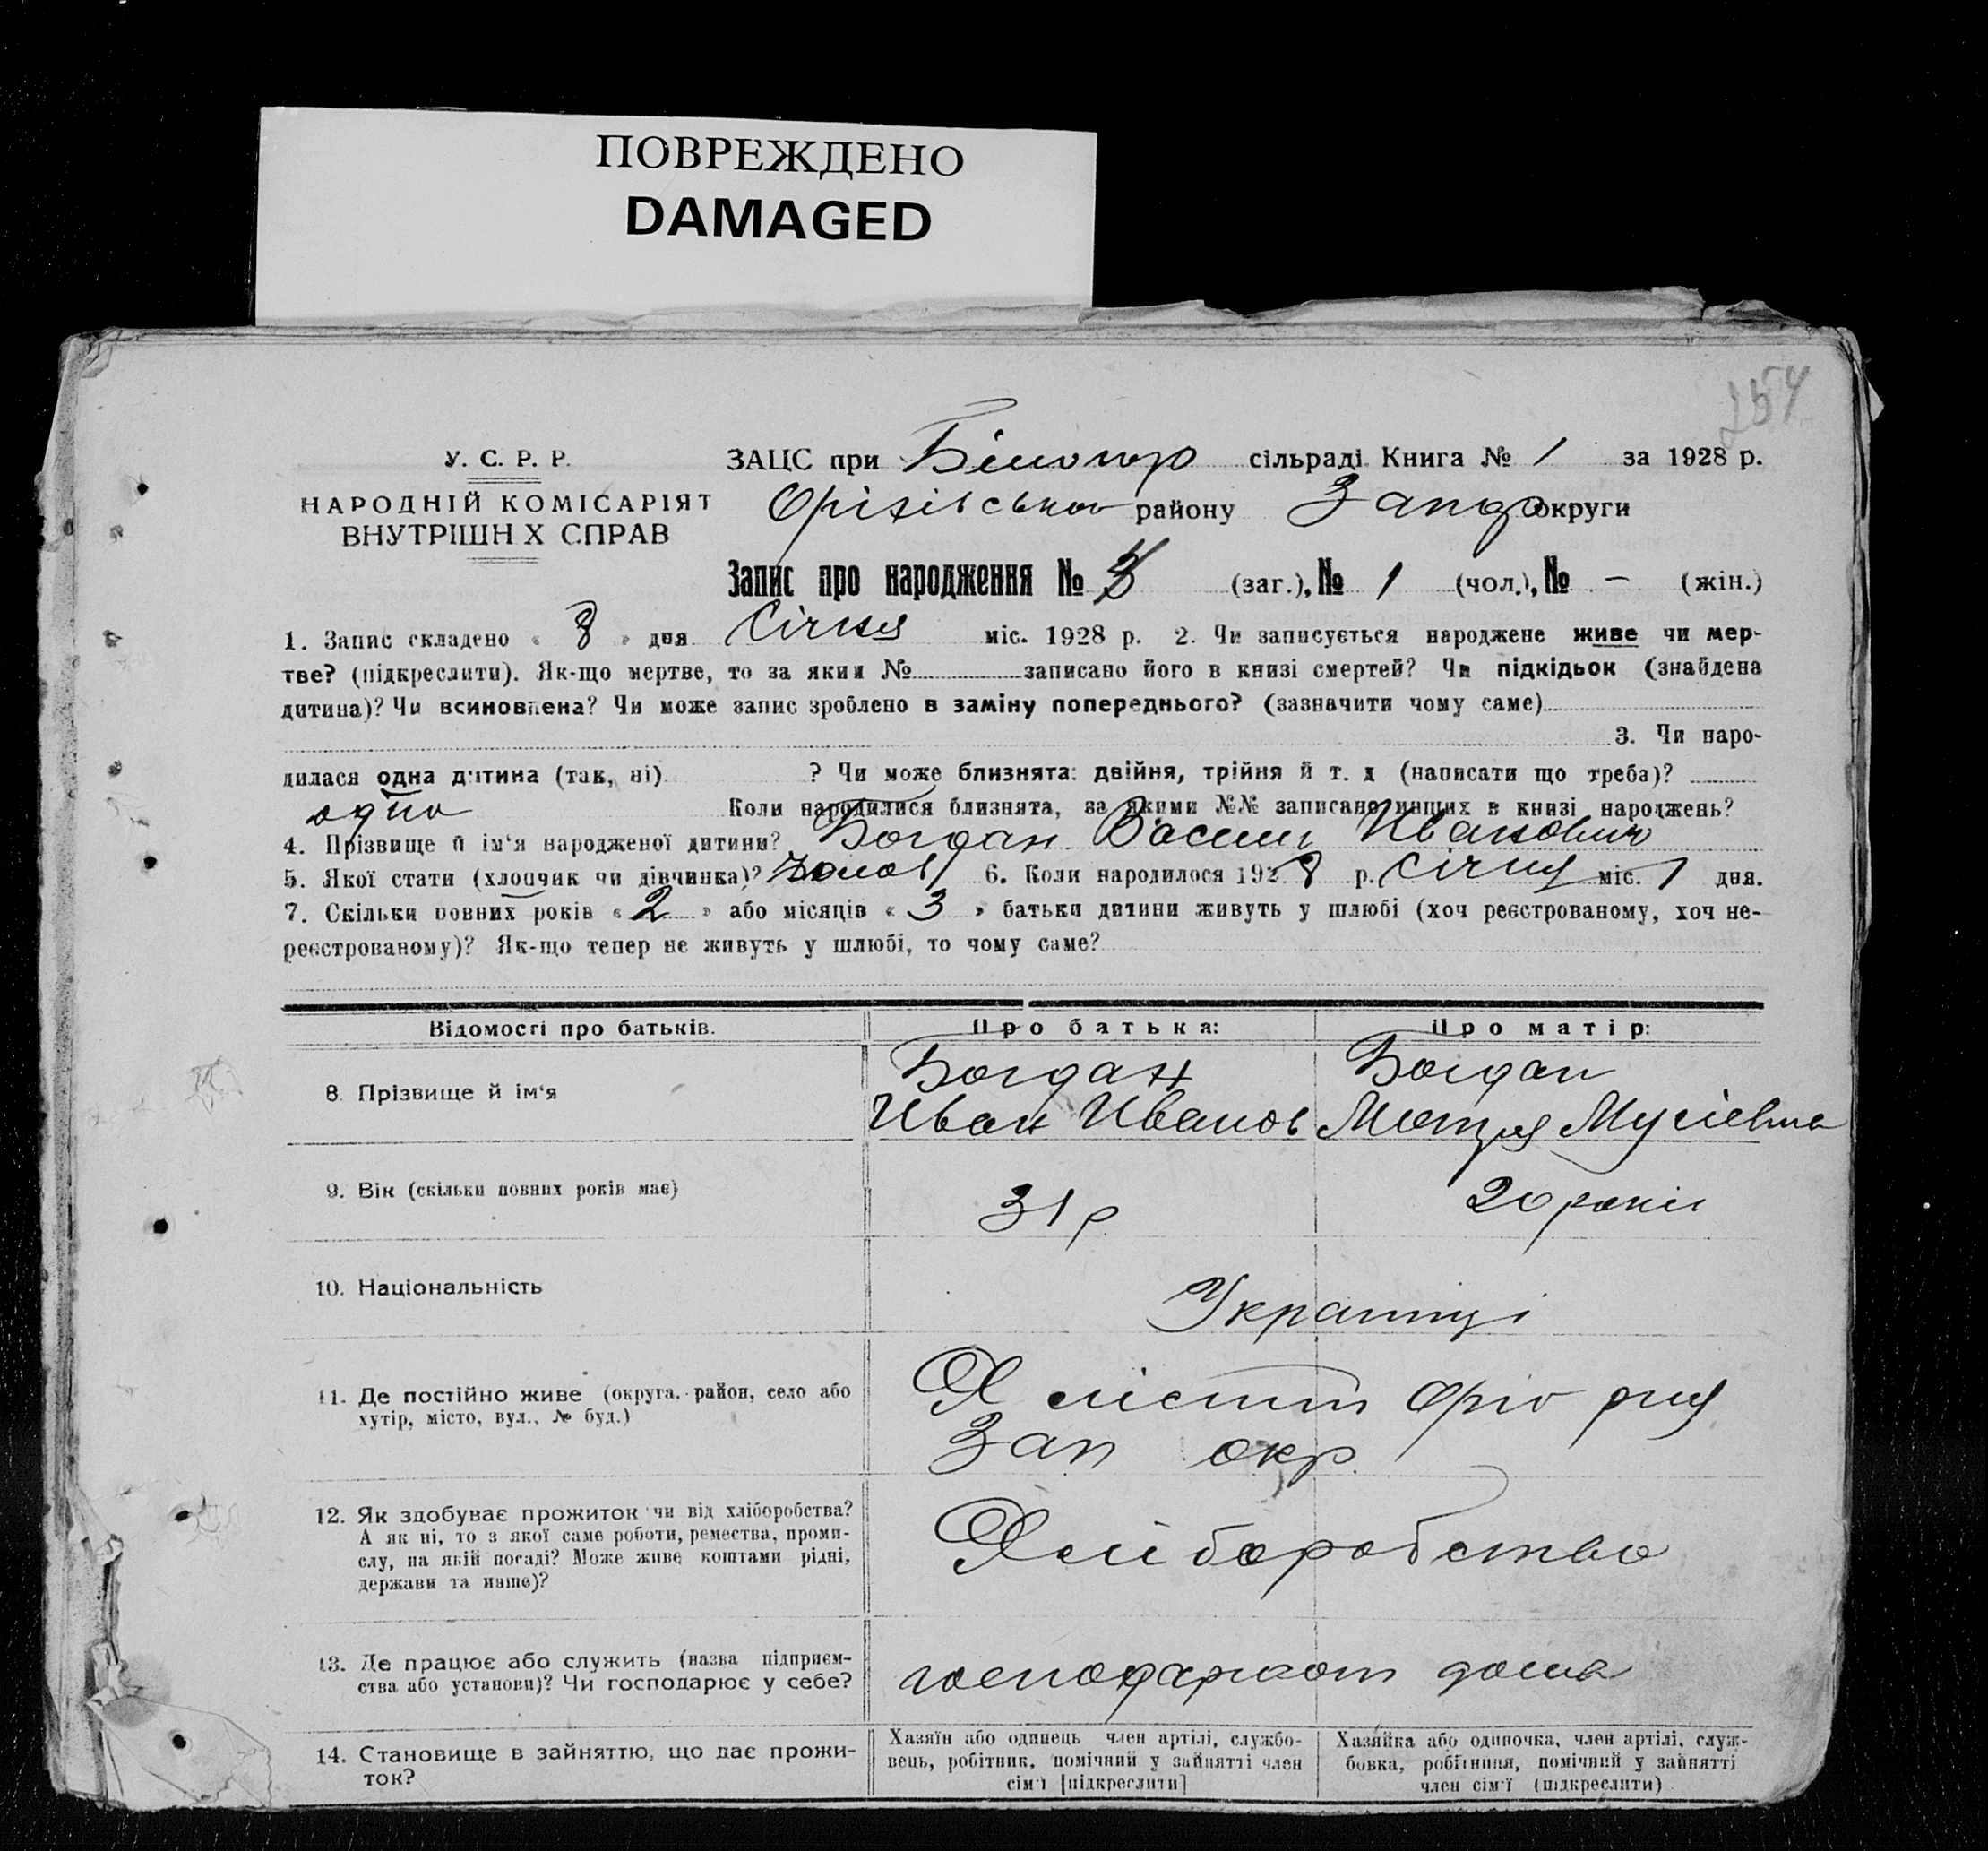 ПОВРЕЖДЕНО
DAMAGED
254
У. С. Р. Р.
НАРОДНІЙ КОМІСАРІЯТ
ВНУТРІШН Х СПРАВ
ЗАЦС при Білогор сільраді Книга № 1 за 1928 р.
Оріхівськ району Запор округи
Запис про народження № 3 (заг.), № 1 (чол.), № – (жін.)
1. Запис складено « 8 » дня Січня міс. 1928 р. 2. Чи записується народжене живе чи мер-
тве? (підкреслити). Як-що мертве, то за яким № записано його в книзі смертей? Чи підкідьок (знайдена
дитина)? Чи всиновлена? Чи може запис зроблено в заміну попереднього? (зазначити чому саме)
3. Чи наро-
дилася одна дитина (так, ні) ? Чи може близнята: двійня, трійня й т. д (написати що треба)?
одно Коли народилися близнята, за якими №№ записано инших в книзі народжень?
4. Прізвище й ім'я народженої дитини? Богдан Василь Иванович
5. Якої стати (хлопчик чи дівчинка)? 6. Коли народилося 1928 р. Січня міс. 1 дня.
7. Скільки повних років « 2 » або місяців « 3 » батьки дитини живуть у шлюбі (хоч реєстрованому, хоч не-
реєстрованому)? Як-що тепер не живуть у шлюбі, то чому саме?
Відомості про батьків. Про батька: Про матір:
8. Прізвище й ім'я
Богдан Богдан
Иван Иванов Мотря Мусіевна
9. Вік (скільки повних років має) 31 р 20 років
10. Національність Українці
11. Де постійно живе (округа, район, село або
хутір, місто, вул., № буд.)
Оріх рну
Зап окр.
12. Як здобуває прожиток чи від хліборобства?
А як ні, то з якої саме роботи, ремества, проми-
слу, на якій посаді? Може живе коштами рідні,
держави та инше)?
Хліборобство
13. Де працює або служить (назва підприєм-
ства або установи)? Чи господарює у себе?
господарюют дома
14. Становище в зайняттю, що дає прожи-
ток?
Хазяїн або одинець член артілі, службо-
вець, робітник, помічний у зайнятті член
сім'ї [підкреслити]
Хазяйка або одиночка, член артілі, служ-
бовка, робітниця, помічний у зайнятті
член сім'ї (підкреслити)